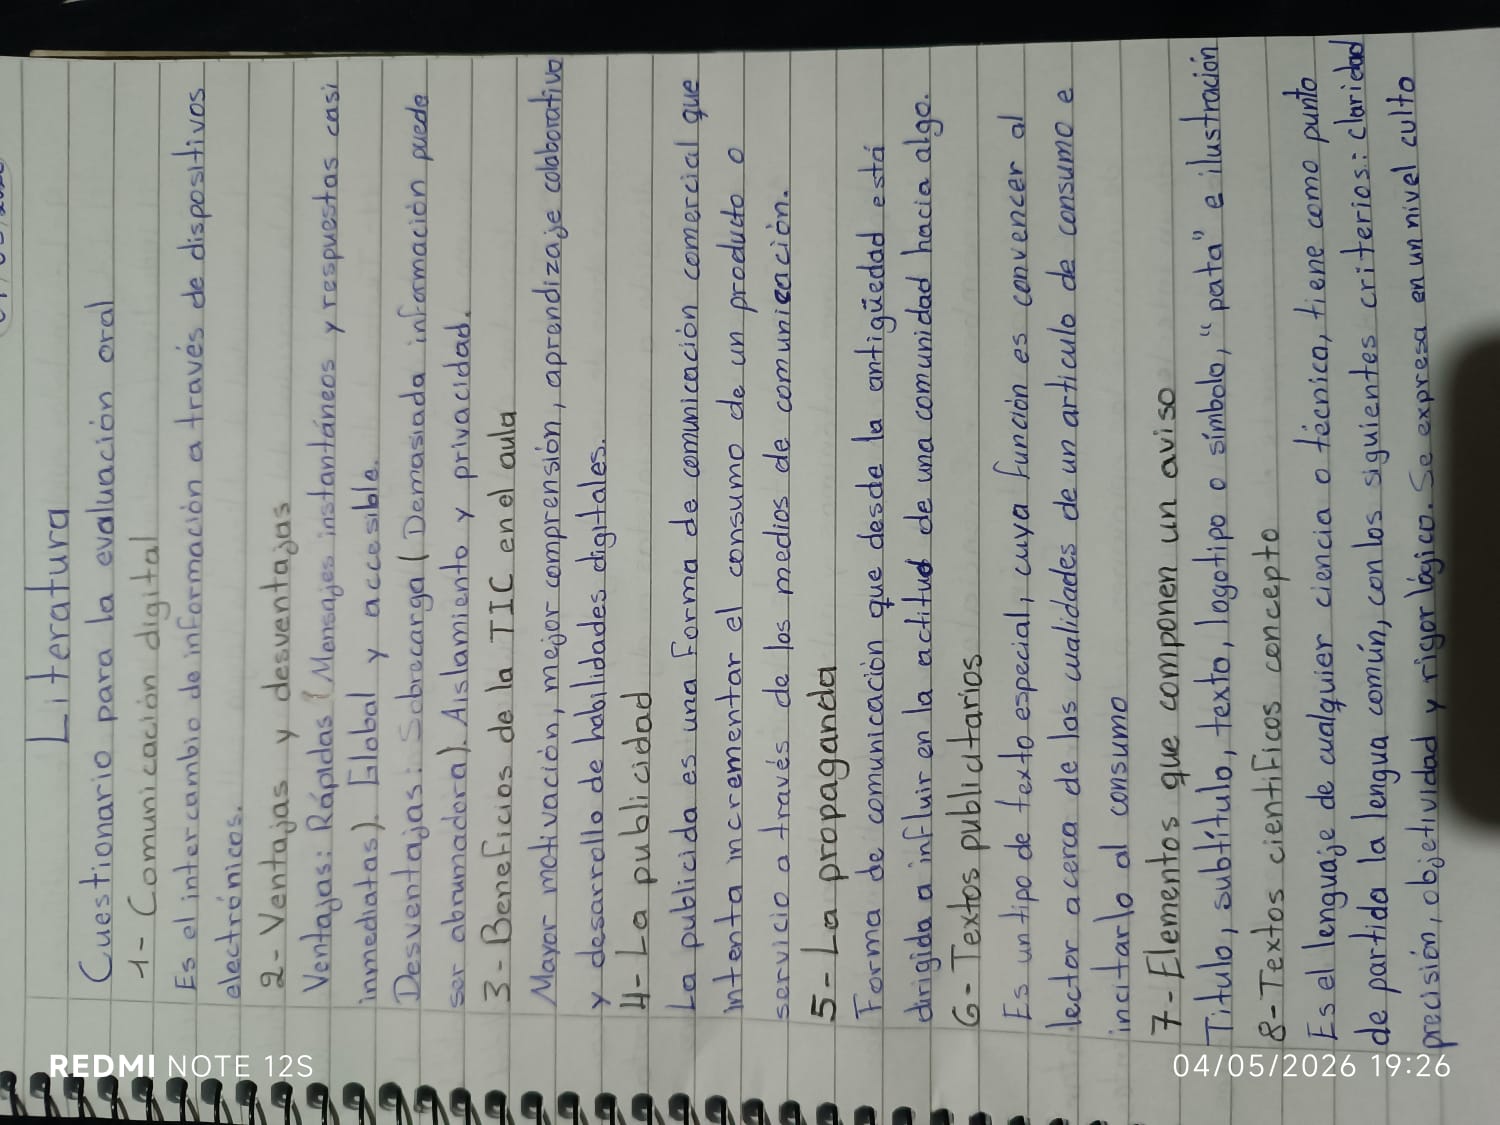 Literatura
Cuestionario para la evaluación oral
1- Comunicación digital
Es el intercambio de información a través de dispositivos
electrónicos.
2- Ventajas y desventajas
Ventajas: Rápidas (Mensajes instantáneos y respuestas casi
inmediatas). Global y accesible.
Desventajas: Sobrecarga (Demasiada información puede
ser abrumadora). Aislamiento y privacidad.
3- Beneficios de la TIC en el aula
Mayor motivación, mejor comprensión, aprendizaje colaborativo
y desarrollo de habilidades digitales.
4- La publicidad
La publicida es una Forma de comunicación comercial que
intenta incrementar el consumo de un producto o
servicio a través de los medios de comunicación.
5- La propaganda
Forma de comunicación que desde la antigüedad está
dirigida a influir en la actitud de una comunidad hacia algo.
6- Textos publicitarios
Es un tipo de texto especial, cuya función es convencer al
lector acerca de las cualidades de un artículo de consumo e
incitarlo al consumo
7- Elementos que componen un aviso
Título, subtítulo, texto, logotipo o símbolo, "pata" e ilustración
8- Textos científicos concepto
Es el lenguaje de cualquier ciencia o técnica, tiene como punto
de partida la lengua común, con los siguientes criterios: claridad
precisión, objetividad y rigor lógico. Se expresa en un nivel culto
REDMI NOTE 12S
04/05/2026 19:26